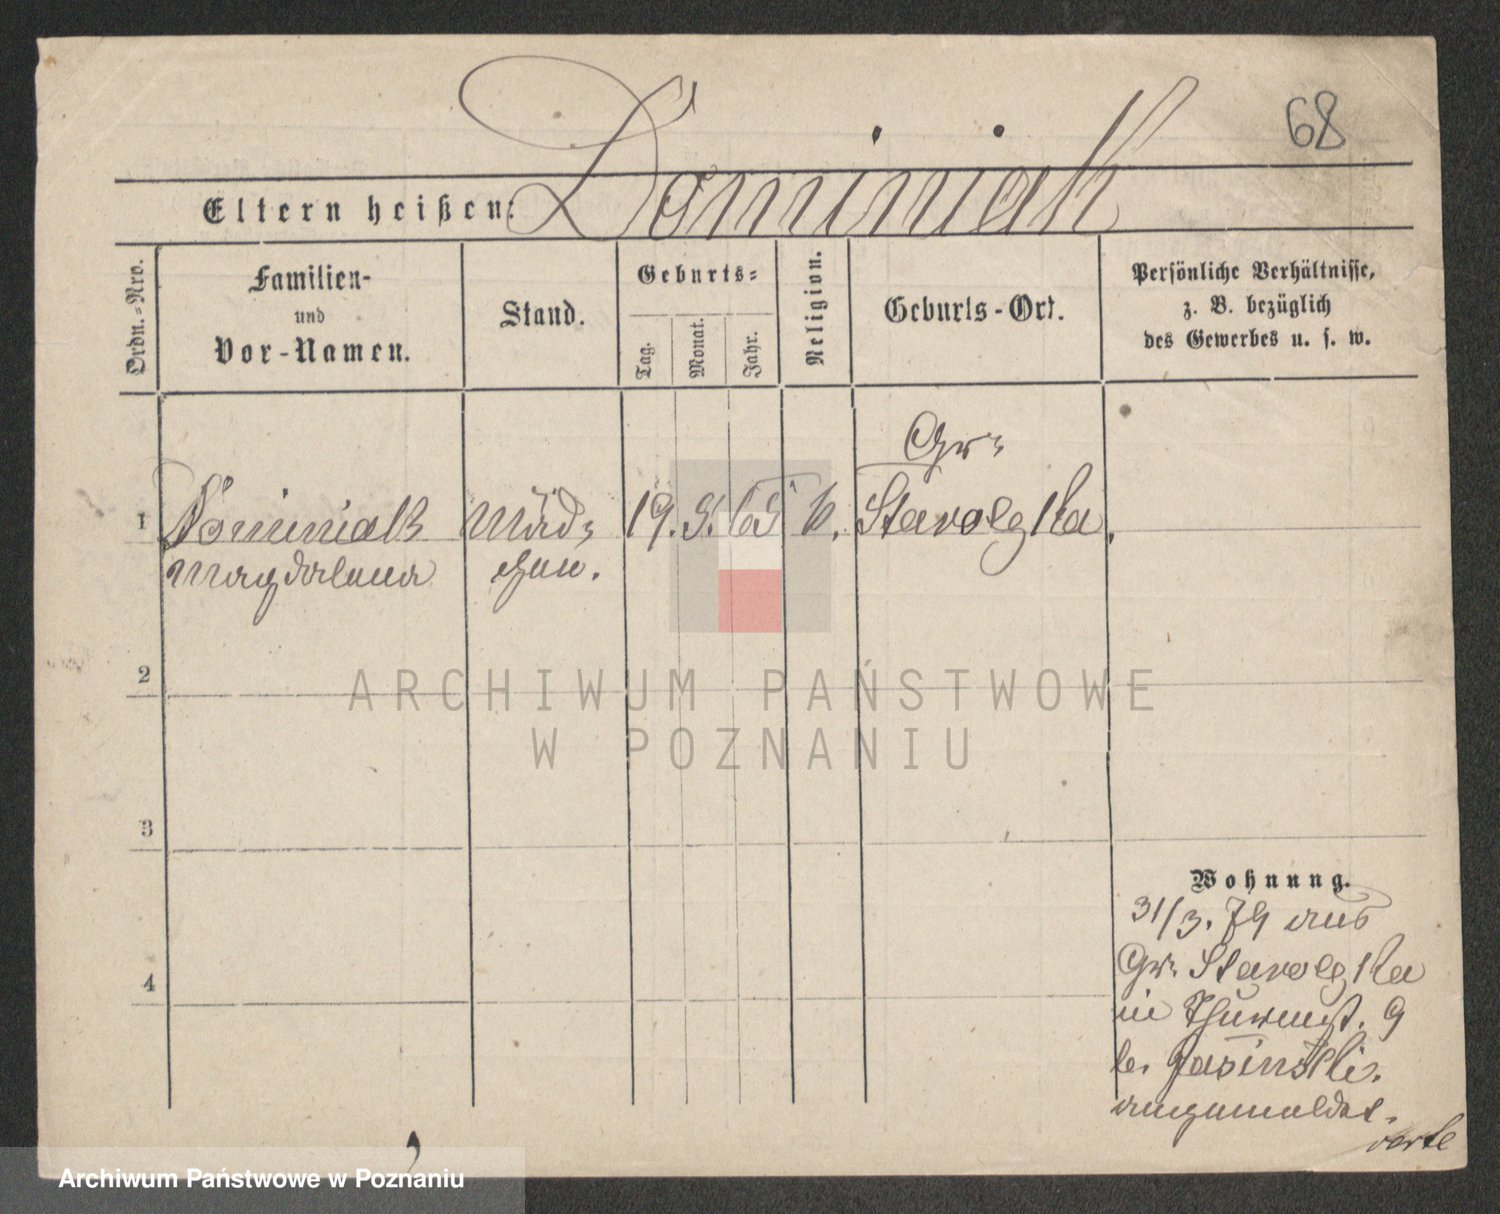 68
Dominiak
Eltern heißen:
Ordn.-Nro.
Familien-
und
Vor-Namen.
Stand.
Geburts-
Tag.
Monat.
Jahr.
Religion.
Geburts-Ort.
Persönliche Verhältnisse,
z. B. bezüglich
des Gewerbes u. s. w.
Gr.
1 Dominiak Mäd- 19. 5. 65 k. Starolęka.
Magdalena chen.
2
ARCHIWUM PAŃSTWOWE
W POZNANIU
3
Wohnung.
31/3. 79 aus
4 Gr. Starolęka
in Thurmst. 9
b. Jasinski.
angemeldet.
verte
Archiwum Państwowe w Poznaniu